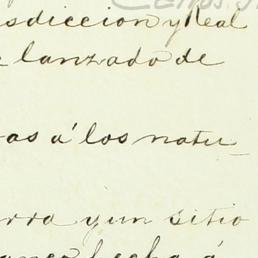 sdiccion y Real
lanzado de
as á los natu_
rra y un sitio
hecha á